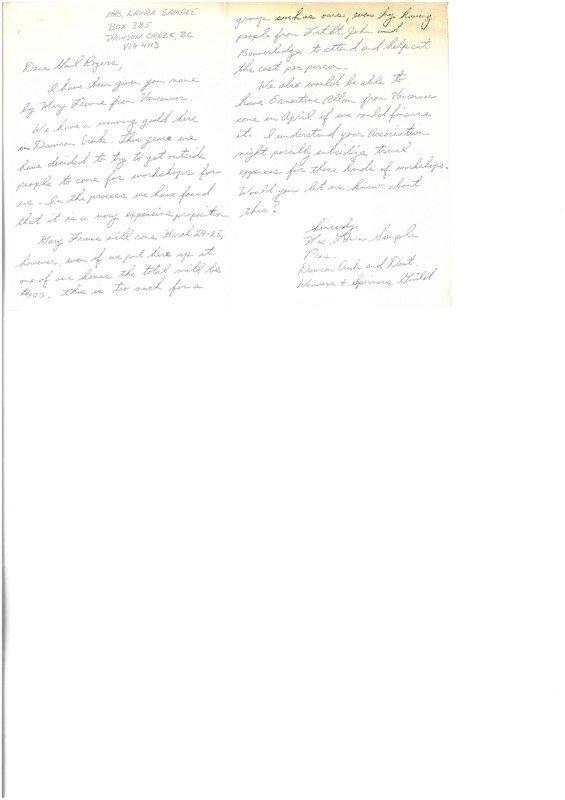 MRS. LAURA SAMPLE
BOX 385
DAWSON CREEK, BC
V1G 4H3
Dear Gail Rogers,
I have been given your name
by Mary Frame from Vancouver.
We have a weaving guild here
in Dawson Creek. This year we
have decided to try to get outside
people to come for workshops for
us. In the process we have found
that it is a very expensive proposition.
Mary Frame will come March 24-25,
however, even if we put her up at
one of our homes the total will be
$400. This is too much for a
group such as ours, even by having
people from Fort St. John and
to attend and help cut
the cost per person.
We also would be able to
have Ernestine Allan from Vancouver
come in April if we could finance
it. I understand your Association
might possibly subsidize travel
expenses for these kinds of workshops.
Would you let me know about
this?
Sincerely
Mrs. Laura Sample
Pres.
Dawson Creek and Dist.
Weavers + Spinners Guild